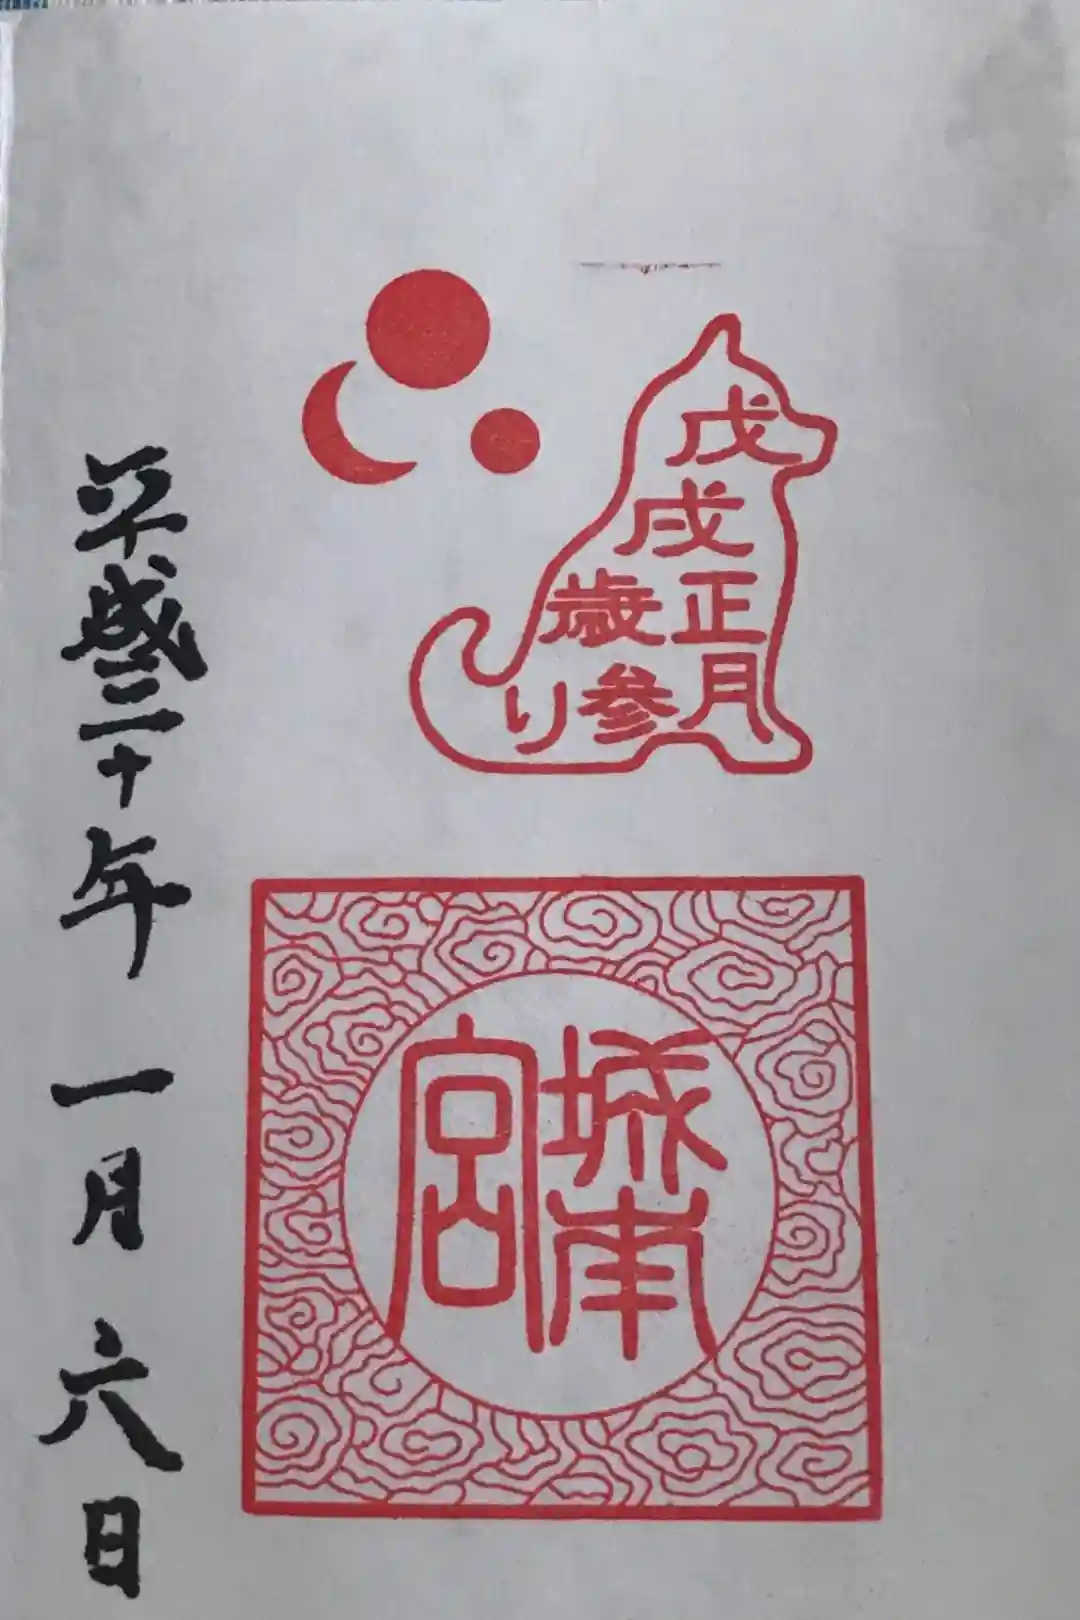 戊戌正月
歳参り
城南
宮
平成三十年 一月 六日